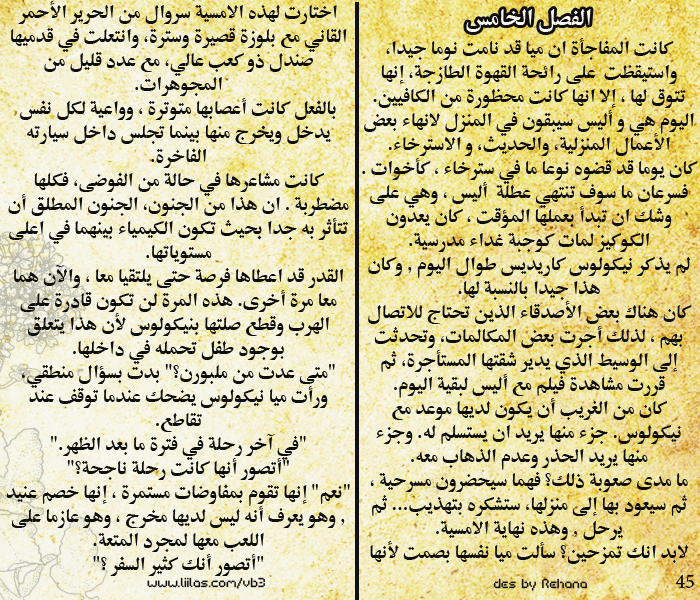 الفصل الخامس
كانت المفاجأة ان ميا قد نامت نوما جيدا،
واستيقظت على رائحة القهوة الطازجة، إنها
تتوق لها ، إلا انها كانت محظورة من الكافيين.
اليوم هي و أليس سيبقون في المنزل لانهاء بعض
الأعمال المنزلية، والحديث، و الاسترخاء.
كان يوما قد قضوه نوعا ما في سترخاء ، كأخوات .
فسرعان ما سوف تنتهي عطلة أليس ، وهي على
وشك ان تبدأ بعملها المؤقت ، كان يعدون
الكوكيز لمات كوجبة غداء مدرسية.
لم يذكر نيكولوس كاريديس طوال اليوم , وكان
هذا جيدا بالنسبة لها.
كان هناك بعض الأصدقاء الذين تحتاج للاتصال
بهم ، لذلك أجرت بعض المكالمات، وتحدثت
إلى الوسيط الذي يدير شقتها المستأجرة، ثم
قررت مشاهدة فيلم مع أليس لبقية اليوم.
كان من الغريب أن يكون لديها موعد مع
نيكولوس. جزء منها يريد ان يستسلم له. وجزء
منها يريد الحذر وعدم الذهاب معه.
ما مدى صعوبة ذلك؟ فهما سيحضرون مسرحية ,
ثم سيعود بها إلى منزلها، ستشكره بتهذيب... ثم
يرحل , وهذه نهاية الامسية.
لابد انك تمزحين؟ سألت ميا نفسها بصمت لأنها
45
des by Rehana
اختارت لهذه الامسية سروال من الحرير الأحمر
القاني مع بلوزة قصيرة وسترة، وانتعلت في قدميها
صندل ذو كعب عالي، مع عدد قليل من
المجوهرات.
بالفعل كانت أعصابها متوترة ، وواعية لكل نفس
يدخل ويخرج منها بينما تجلس داخل سيارته
الفاخرة.
كانت مشاعرها في حالة من الفوضى، فكلها
مضطربة . ان هذا من الجنون، الجنون المطلق أن
تتأثر به جدا بحيث تكون الكيمياء بينهما في اعلى
مستوياتها.
القدر قد اعطاها فرصة حتى يلتقيا معا ، والآن هما
معا مرة أخرى. هذه المرة لن تكون قادرة على
الهرب وقطع صلتها بنيكولوس لأن هذا يتعلق
بوجود طفل تحمله في داخلها.
"متى عدت من ملبورن؟" بدت بسؤال منطقي،
ورأت ميا نيكولوس يضحك عندما توقف عند
تقاطع.
"في آخر رحلة في فترة ما بعد الظهر."
"أتصور أنها كانت رحلة ناجحة؟"
"نعم" إنها تقوم بمفاوضات مستمرة ، إنها خصم عنيد
, وهو يعرف أنه ليس لديها مخرج ، وهو عازما على
اللعب معها لمجرد المتعة.
"أتصور أنك كثير السفر ؟"
www.liilas.com/vb3